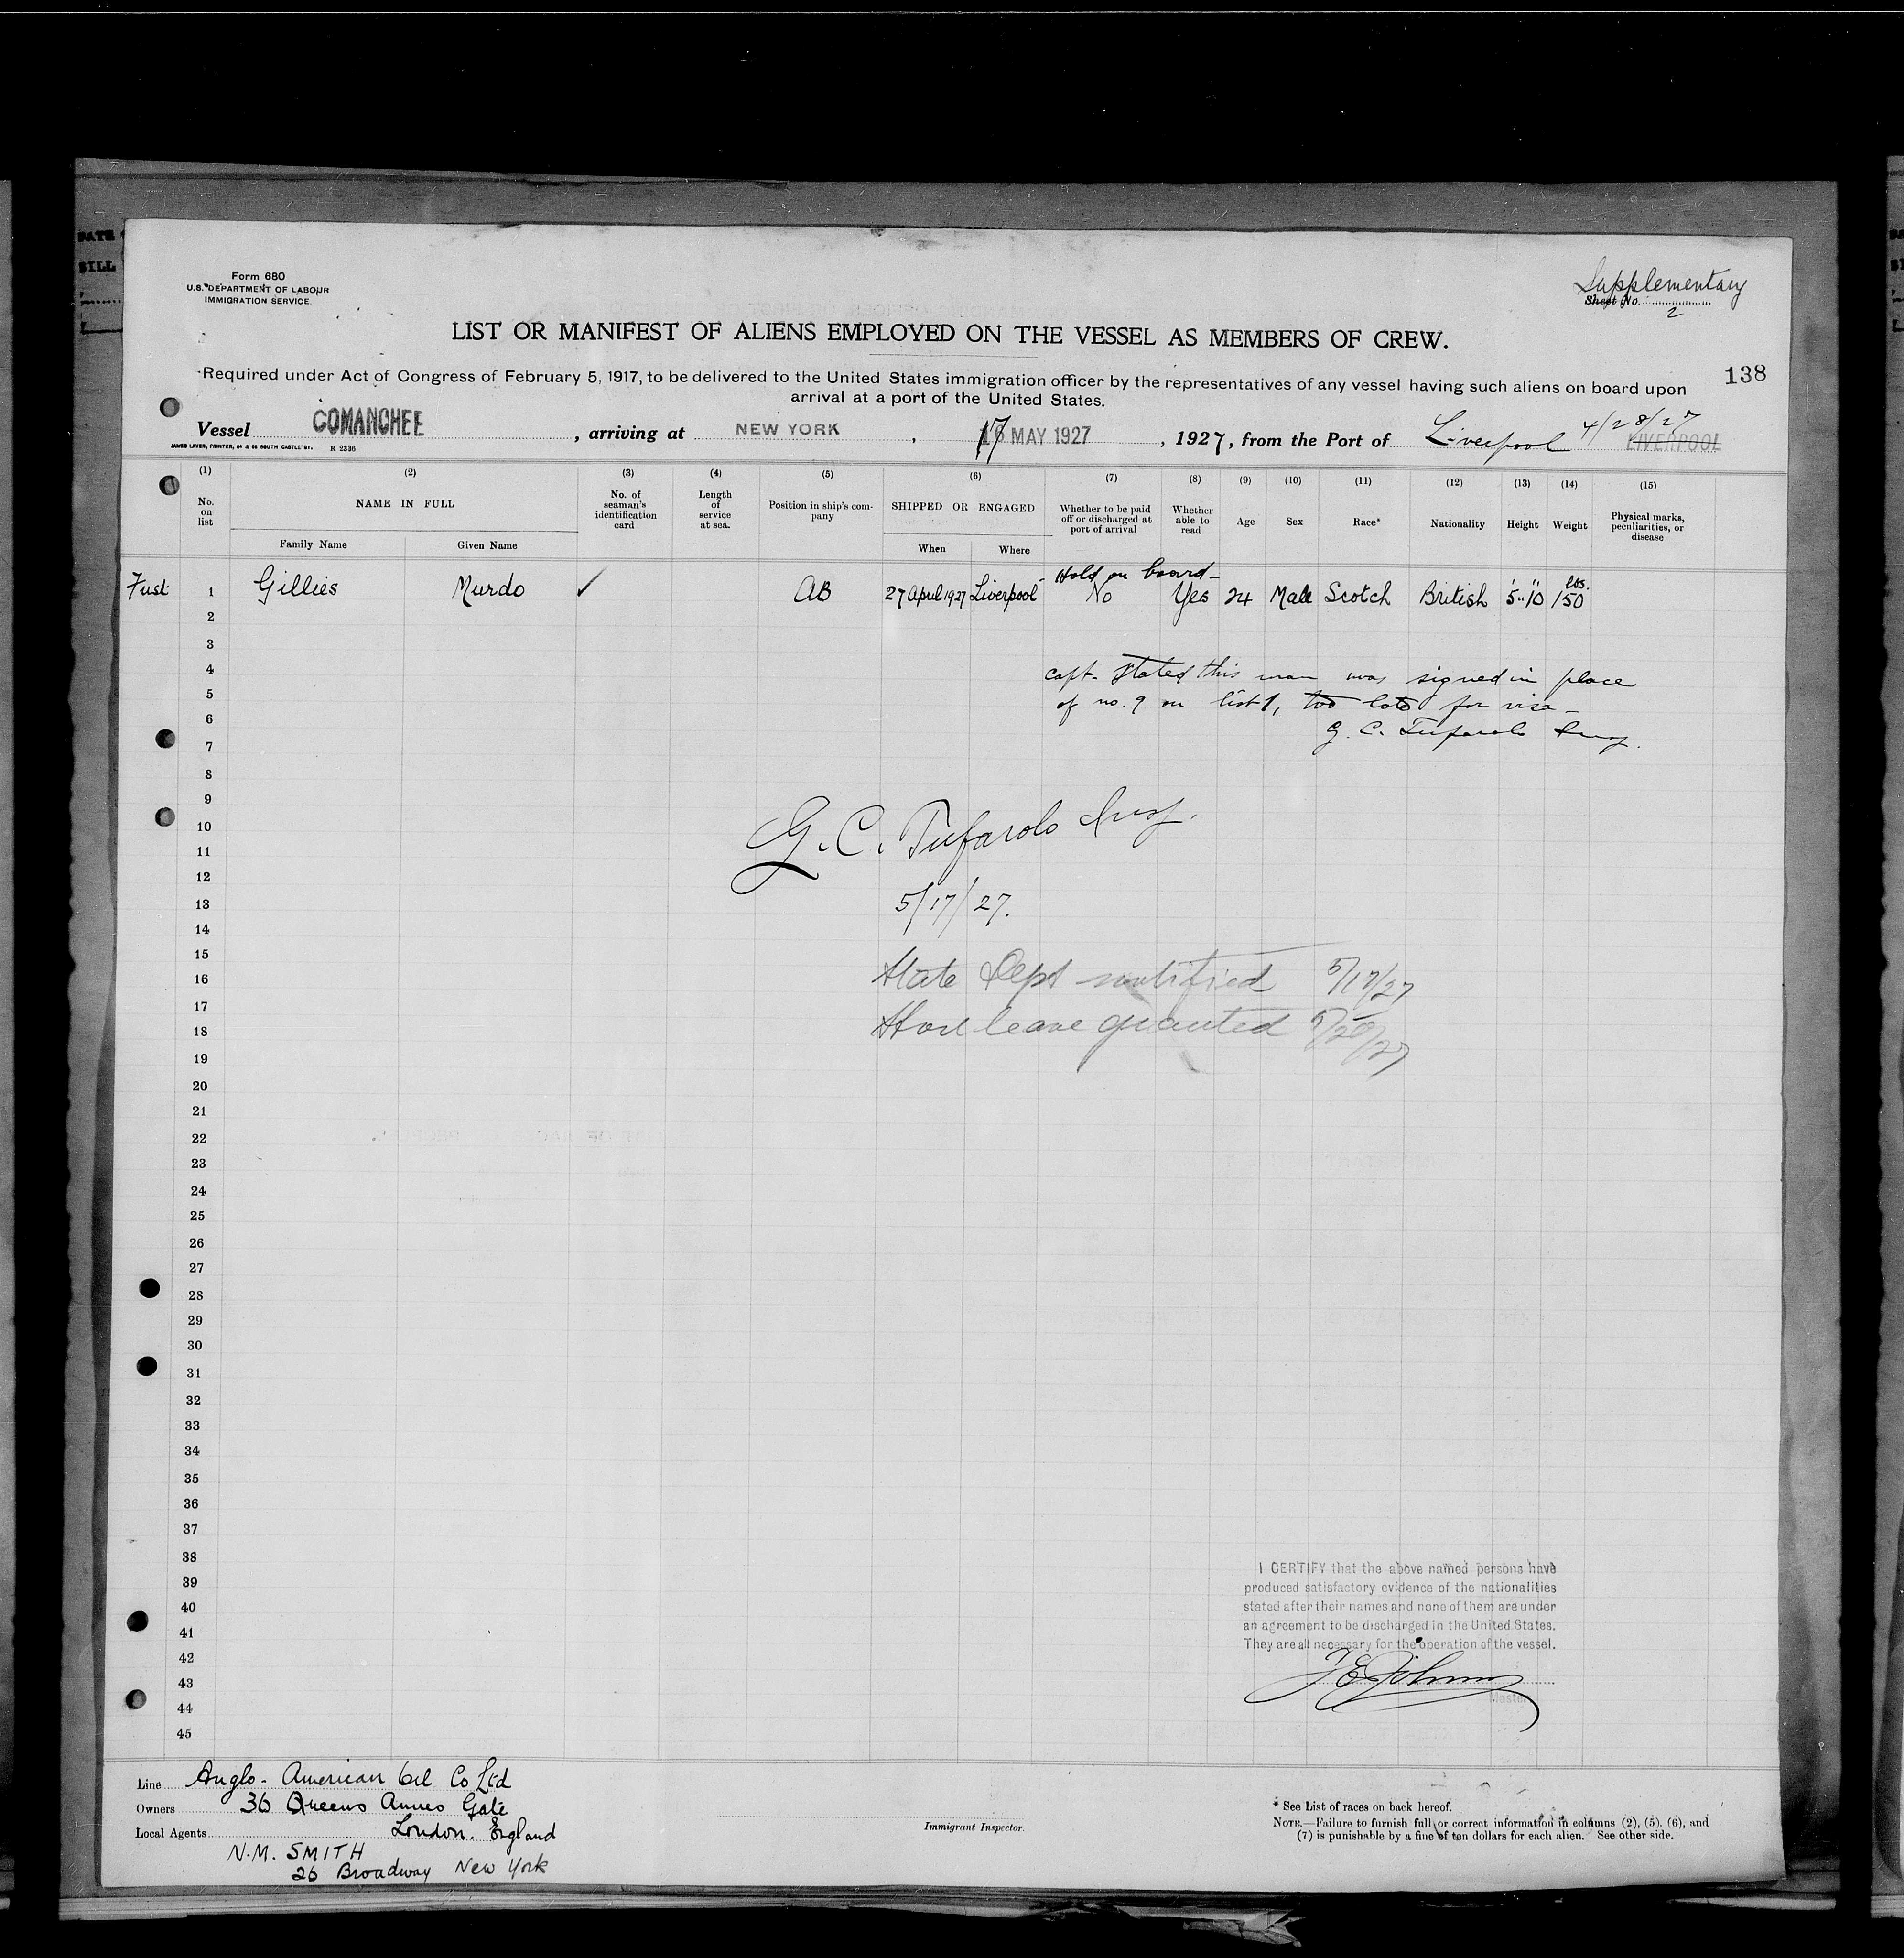 Form 680
U.S. DEPARTMENT OF LABOUR
IMMIGRATION SERVICE.
Supplementary
Sheet No. 2
LIST OR MANIFEST OF ALIENS EMPLOYED ON THE VESSEL AS MEMBERS OF CREW.
138
Required under Act of Congress of February 5, 1917, to be delivered to the United States immigration officer by the representatives of any vessel having such aliens on board upon
arrival at a port of the United States.
Vessel COMANCHEE, arriving at NEW YORK, 17 MAY 1927, 1927, from the Port of Liverpool 4/28/27 LIVERPOOL
JAMES LAVER, PRINTER, 64 & 66 SOUTH CASTLE ST. R 2336
(1) (2) (3) (4) (5) (6) (7) (8) (9) (10) (11) (12) (13) (14) (15)
No. on list
NAME IN FULL
Family Name Given Name
No. of seaman's identification card
Length of service at sea.
Position in ship's company
SHIPPED OR ENGAGED
When Where
Whether to be paid off or discharged at port of arrival
Whether able to read
Age
Sex
Race*
Nationality
Height
Weight
Physical marks, peculiarities, or disease
Hold on board -
1 Gillies Murdo ✓ AB 27 April 1927 Liverpool No Yes 24 Male Scotch British 5'.10" 150 lbs.
2
3
4
capt. stated this man was signed in place
5
of no. 9 on list 1, too late for visa -
6
G. C. Tufarolo Insp.
7
8
9
10
G. C. Tufarolo Insp.
11
12
13
5/17/27.
14
15
16
State Dept notified 5/17/27
17
18
Shore leave granted 5/20/27
19
20
21
22
23
24
25
26
27
28
29
30
31
32
33
34
35
36
37
38
39
40
41
42
43
44
45
I CERTIFY that the above named persons have
produced satisfactory evidence of the nationalities
stated after their names and none of them are under
an agreement to be discharged in the United States.
They are all necessary for the operation of the vessel.
Master
Line Anglo-American Oil Co Ltd
Owners 36 Queens Annes Gate
Local Agents London. England
N.M. SMITH
26 Broadway New York
Immigrant Inspector.
* See List of races on back hereof.
NOTE.—Failure to furnish full or correct information in columns (2), (5), (6), and
(7) is punishable by a fine of ten dollars for each alien. See other side.